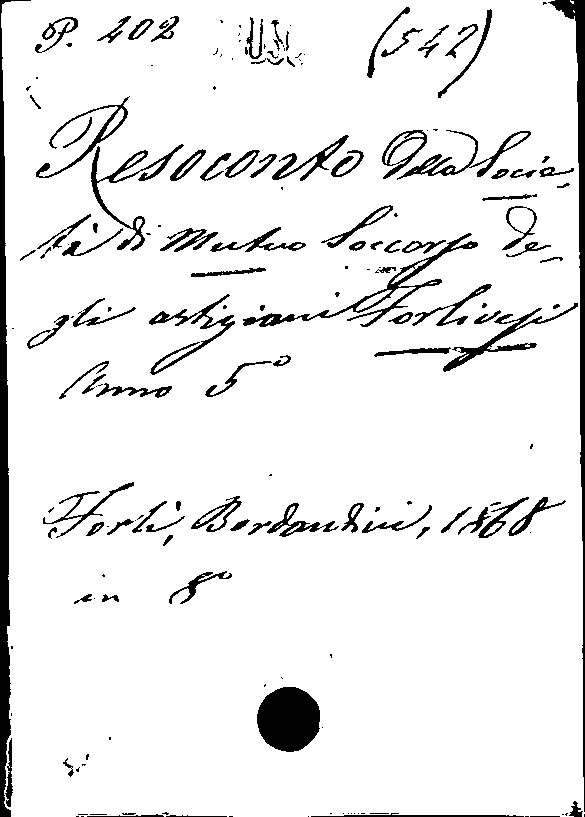 P. 202 (542)
Resoconto della Socie-
tà di Mutuo Soccorso de-
gli artigiani Forlivesi
Anno 5°
Forlì, Bordandini, 1868
in 8°